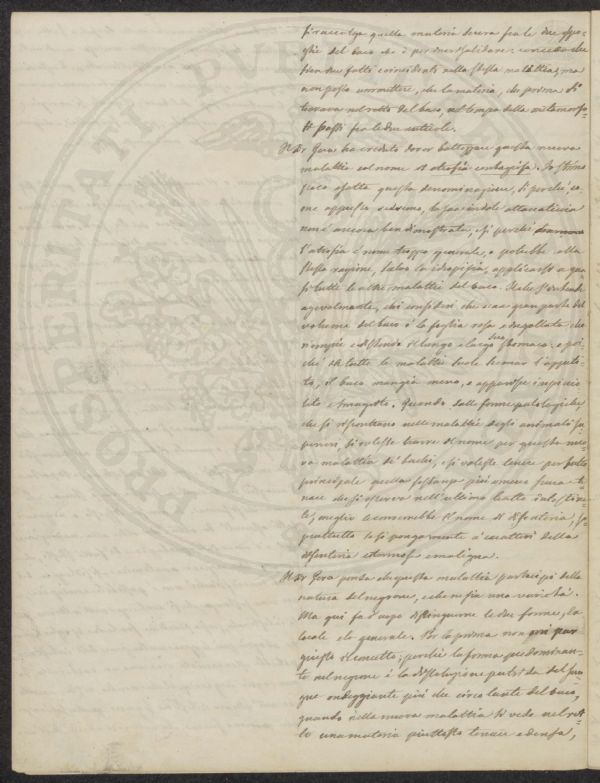 si raccolga quella materia scura fra le due spo=
glie del baco che è per incrisalidare: concedo che
sian due fatti coincidenti nella stessa malattia, ma
non posso ammettere, che la materia, che prima si
trovava nel retto del baco, nel tempo della metamorfo=
si passi fra le due cuticole.
Il Dr Gera ha creduto dover battezzare questa nuova
malattia col nome di atrofia contagiosa. Io
poco esatta questa denominazione, si perché,
come appresso vedremo, la sua indole attaccaticcia
non è ancora ben dimostrata, e si perché
l'atrofia è nome troppo generale, e potrebbe alla
stessa ragione, salvo la idropisia, applicarsi a qua=
si tutte le altre malattie del baco. Il che s'intende
agevolmente, chi consideri che una gran parte del
volume del baco è la foglia rosa e degallata che
riempie e distende il lungo e largo suo stomaco; e poi=
ché in tutte le malattie suole scemar l'appeti=
to, il baco mangia meno, e apparisce impiccio=
lito e smagrito. Quando dalle forme patologiche,
che si riscontrano nelle malattie degli animali su=
periori, si volesse trarre il nome per questa nuo=
va malattia de' bachi, e si volesse tenere per fatto
principale quella sostanza più o meno scura te=
nace che si osserva nell'ultimo tratto intestina=
le, meglio le converrebbe il nome di disenteria, so=
prattutto se si pongon mente a' caratteri della
disenteria estermosa e maligna.
Il Dr Gera pensa che questa malattia partecipi della
natura del negrone, e che ne sia una varietà.
Ma qui fa d'uopo distinguerne le due forme, la
locale e la generale. Per la prima non mi par
giusto il concetto; perché la forma predominan=
te nel negrone è la dissoluzione putrida del san=
gue ondeggiante più che circolante del baco,
quando nella nuova malattia si vede nel ret=
to una materia piuttosto tenace e densa,